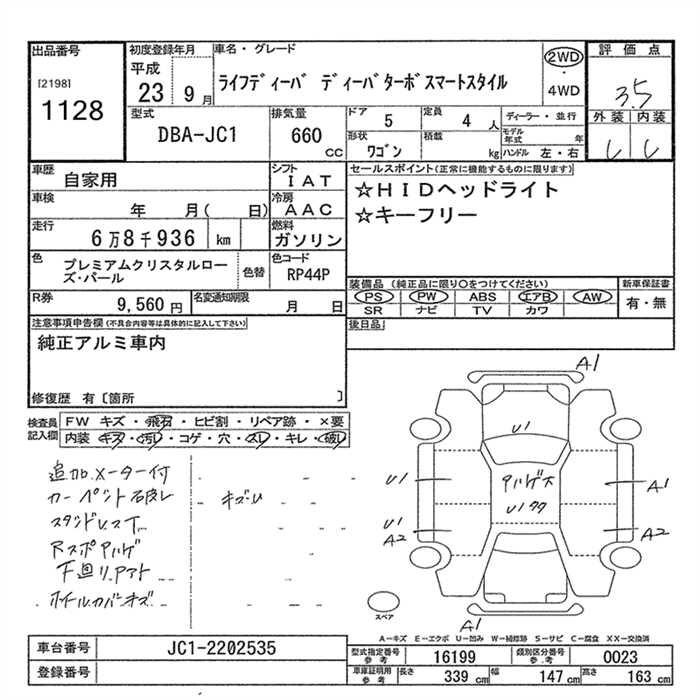 出品番号
[2198]
1128
初度登録年月
平成
23 9月
車名・グレード
ライフディーバ ディーバターボスマートスタイル
2WD
・
4WD
評価点
3.5
外装 内装
型式
DBA-JC1
排気量
660
CC
ドア 5
定員 4 人
形状 ワゴン
積載 kg
ディーラー・並行
モデル年式 年
ハンドル 左・右
車歴 自家用
シフト IAT
車検 年 月( 日)
冷房 AAC
走行 6万8千936 km
燃料 ガソリン
色 プレミアムクリスタルローズ・パール
色替
色コード RP44P
R券 9,560円
名変通知期限 月 日
セールスポイント(正常に機能するものに限り)
☆HIDヘッドライト
☆キーフリー
装備品 (純正品に限り○をつけてください)
PS PW ABS エアB AW
SR ナビ TV カワ
新車保証書
有・無
後日品
注意事項申告欄(不具合内容等は具体的に記入して下さい)
純正アルミ車内
修復歴 有〔箇所 〕
検査員記入欄
FW キズ・飛石・ヒビ割・リペア跡・×要
内装 キズ・汚レ・コゲ・穴・スレ・キレ・破レ
追加メーター付
カーペット破レ
キズU
下廻リ
ホイルカバーキズ
A1
U1
U1
U1
A2
A1
A2
A1
スペア
A―キズ E―エクボ U―凹み W―補修跡 S―サビ C―腐食 XX―交換済
車台番号 JC1-2202535
登録番号
型式指定番号参考 16199
類別区分番号参考 0023
車庫証明用参考 長さ 339cm 幅 147cm 高さ 163cm